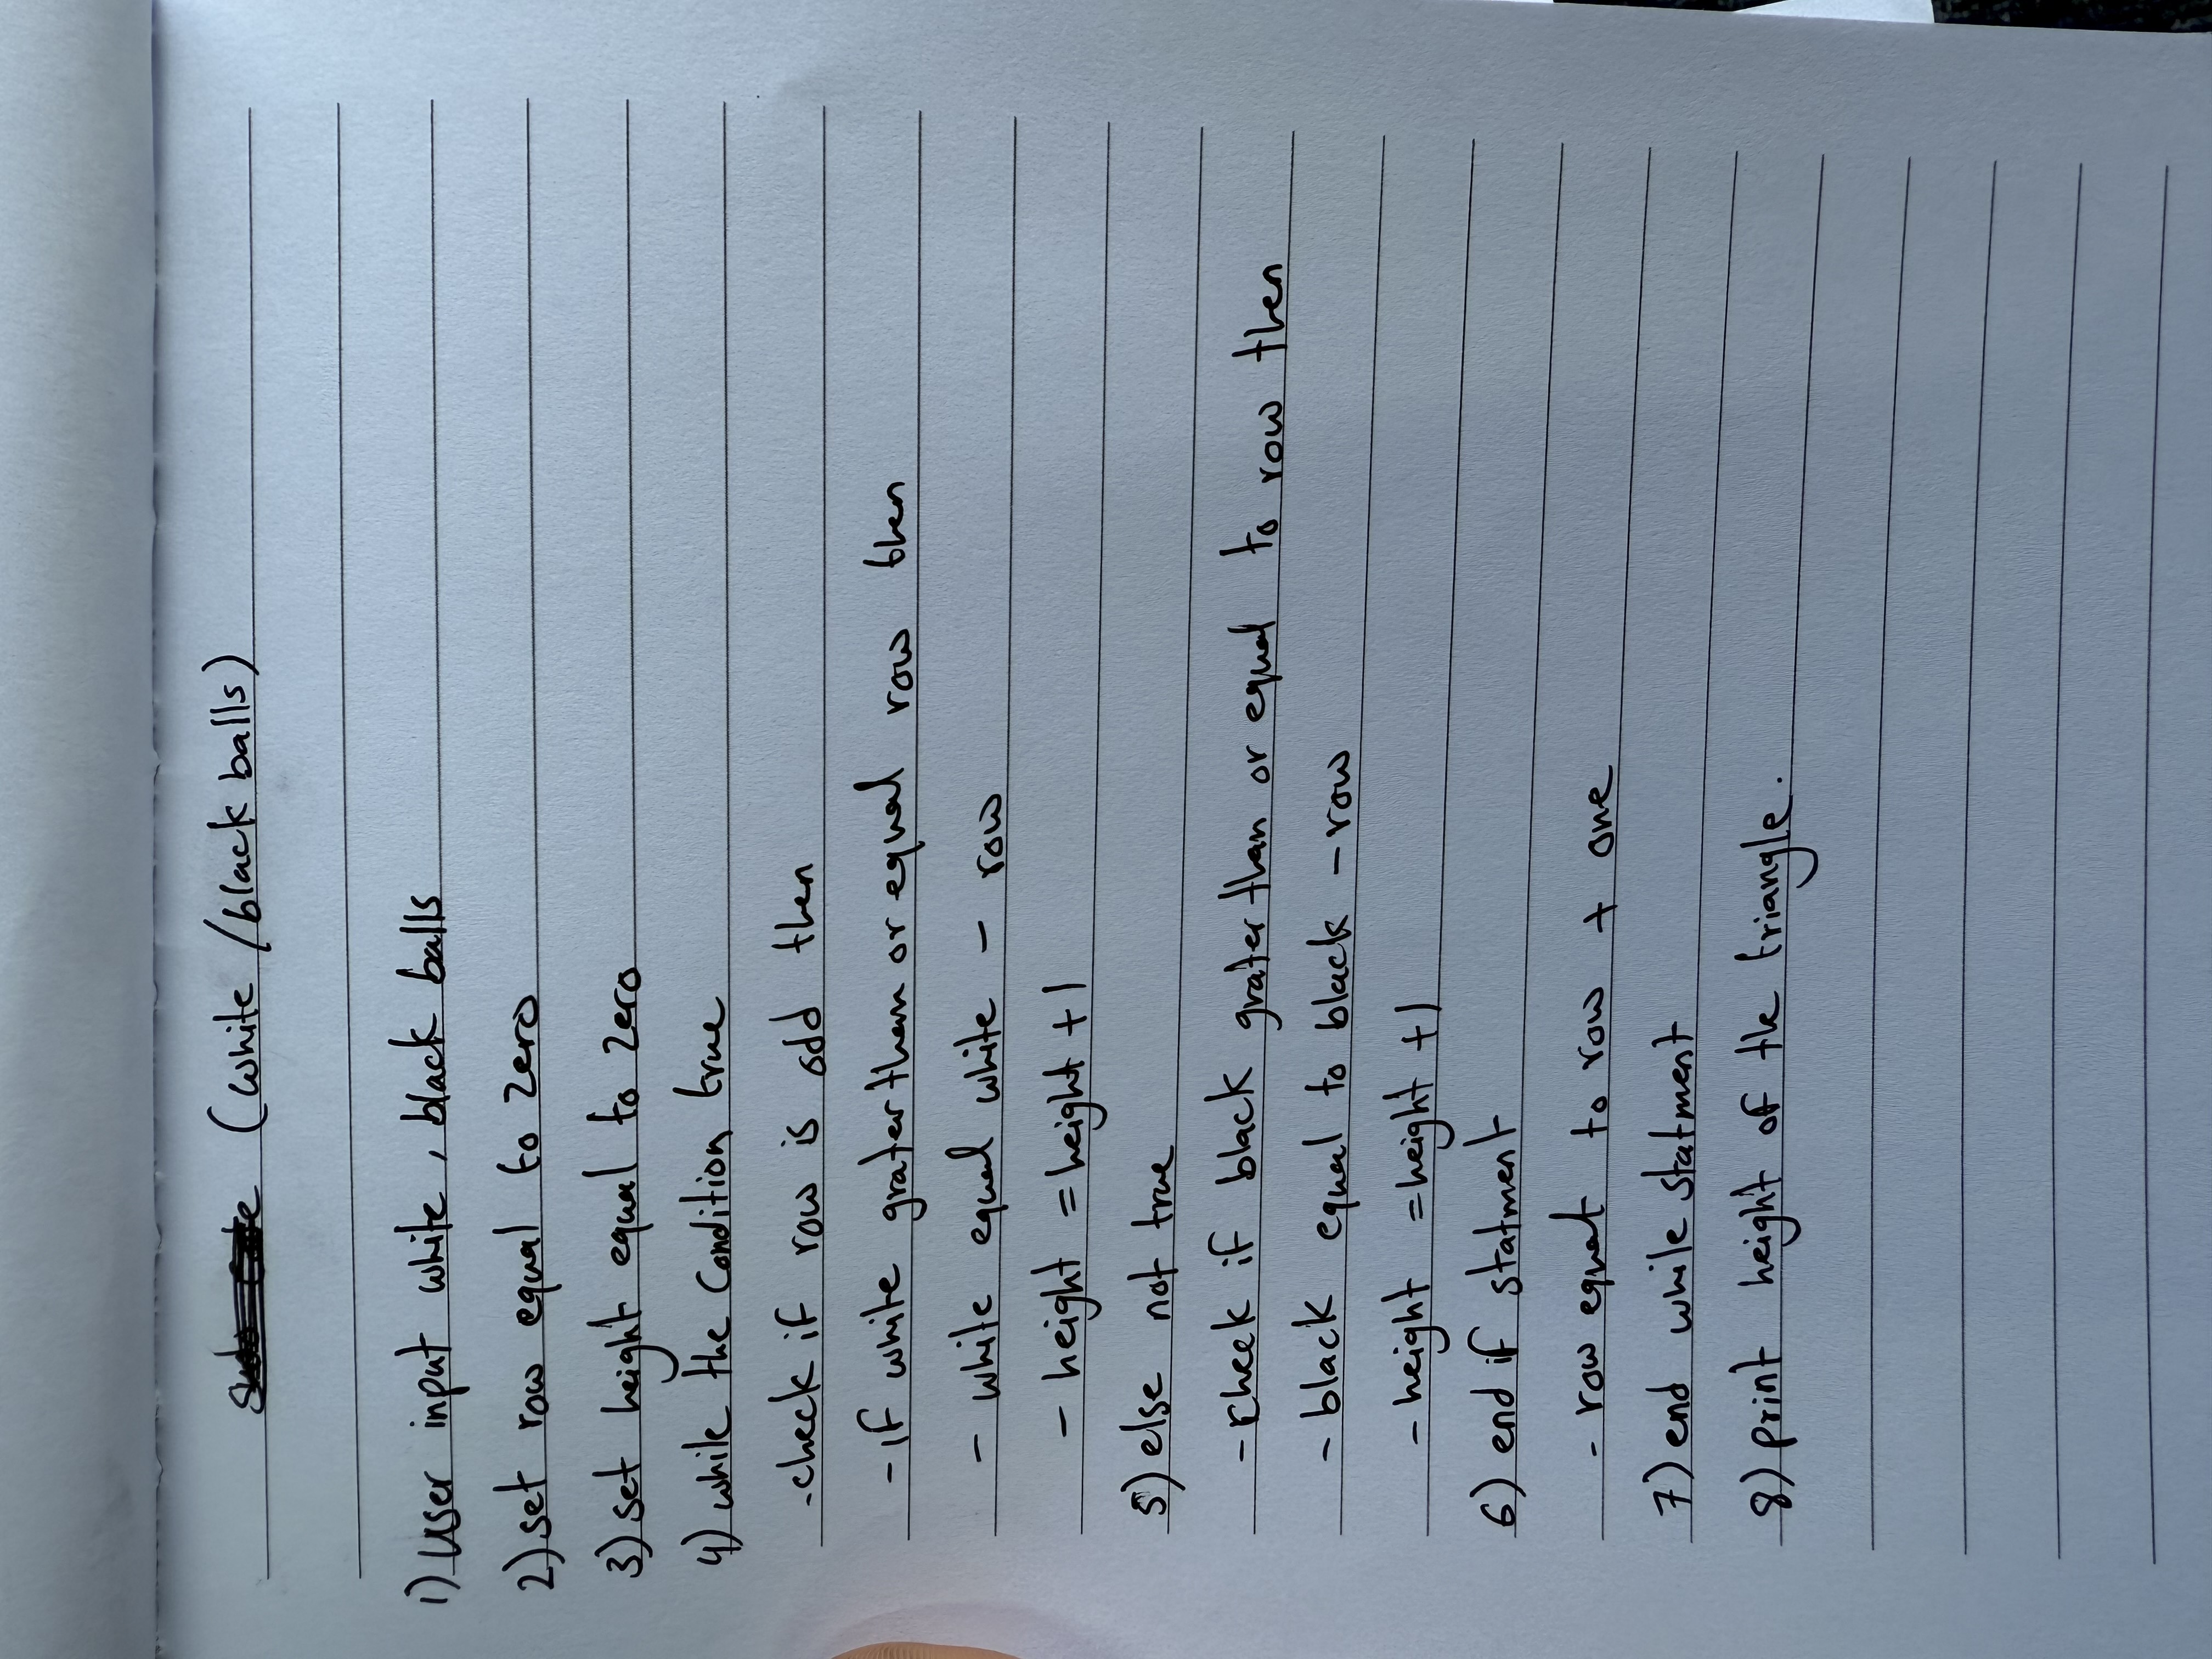 (white / black balls)
1) user input white, black balls
2) set row equal to zero
3) set height equal to zero
4) while the condition true
- check if row is odd then
- if white grater than or equal row then
- white equal white - row
- height = height + 1
5) else not true
- cheek if black grater than or equal to row then
- black equal to black - row
- height = height + 1
6) end if statment
- row equal to row + one
7) end while statment
8) print height of the triangle.